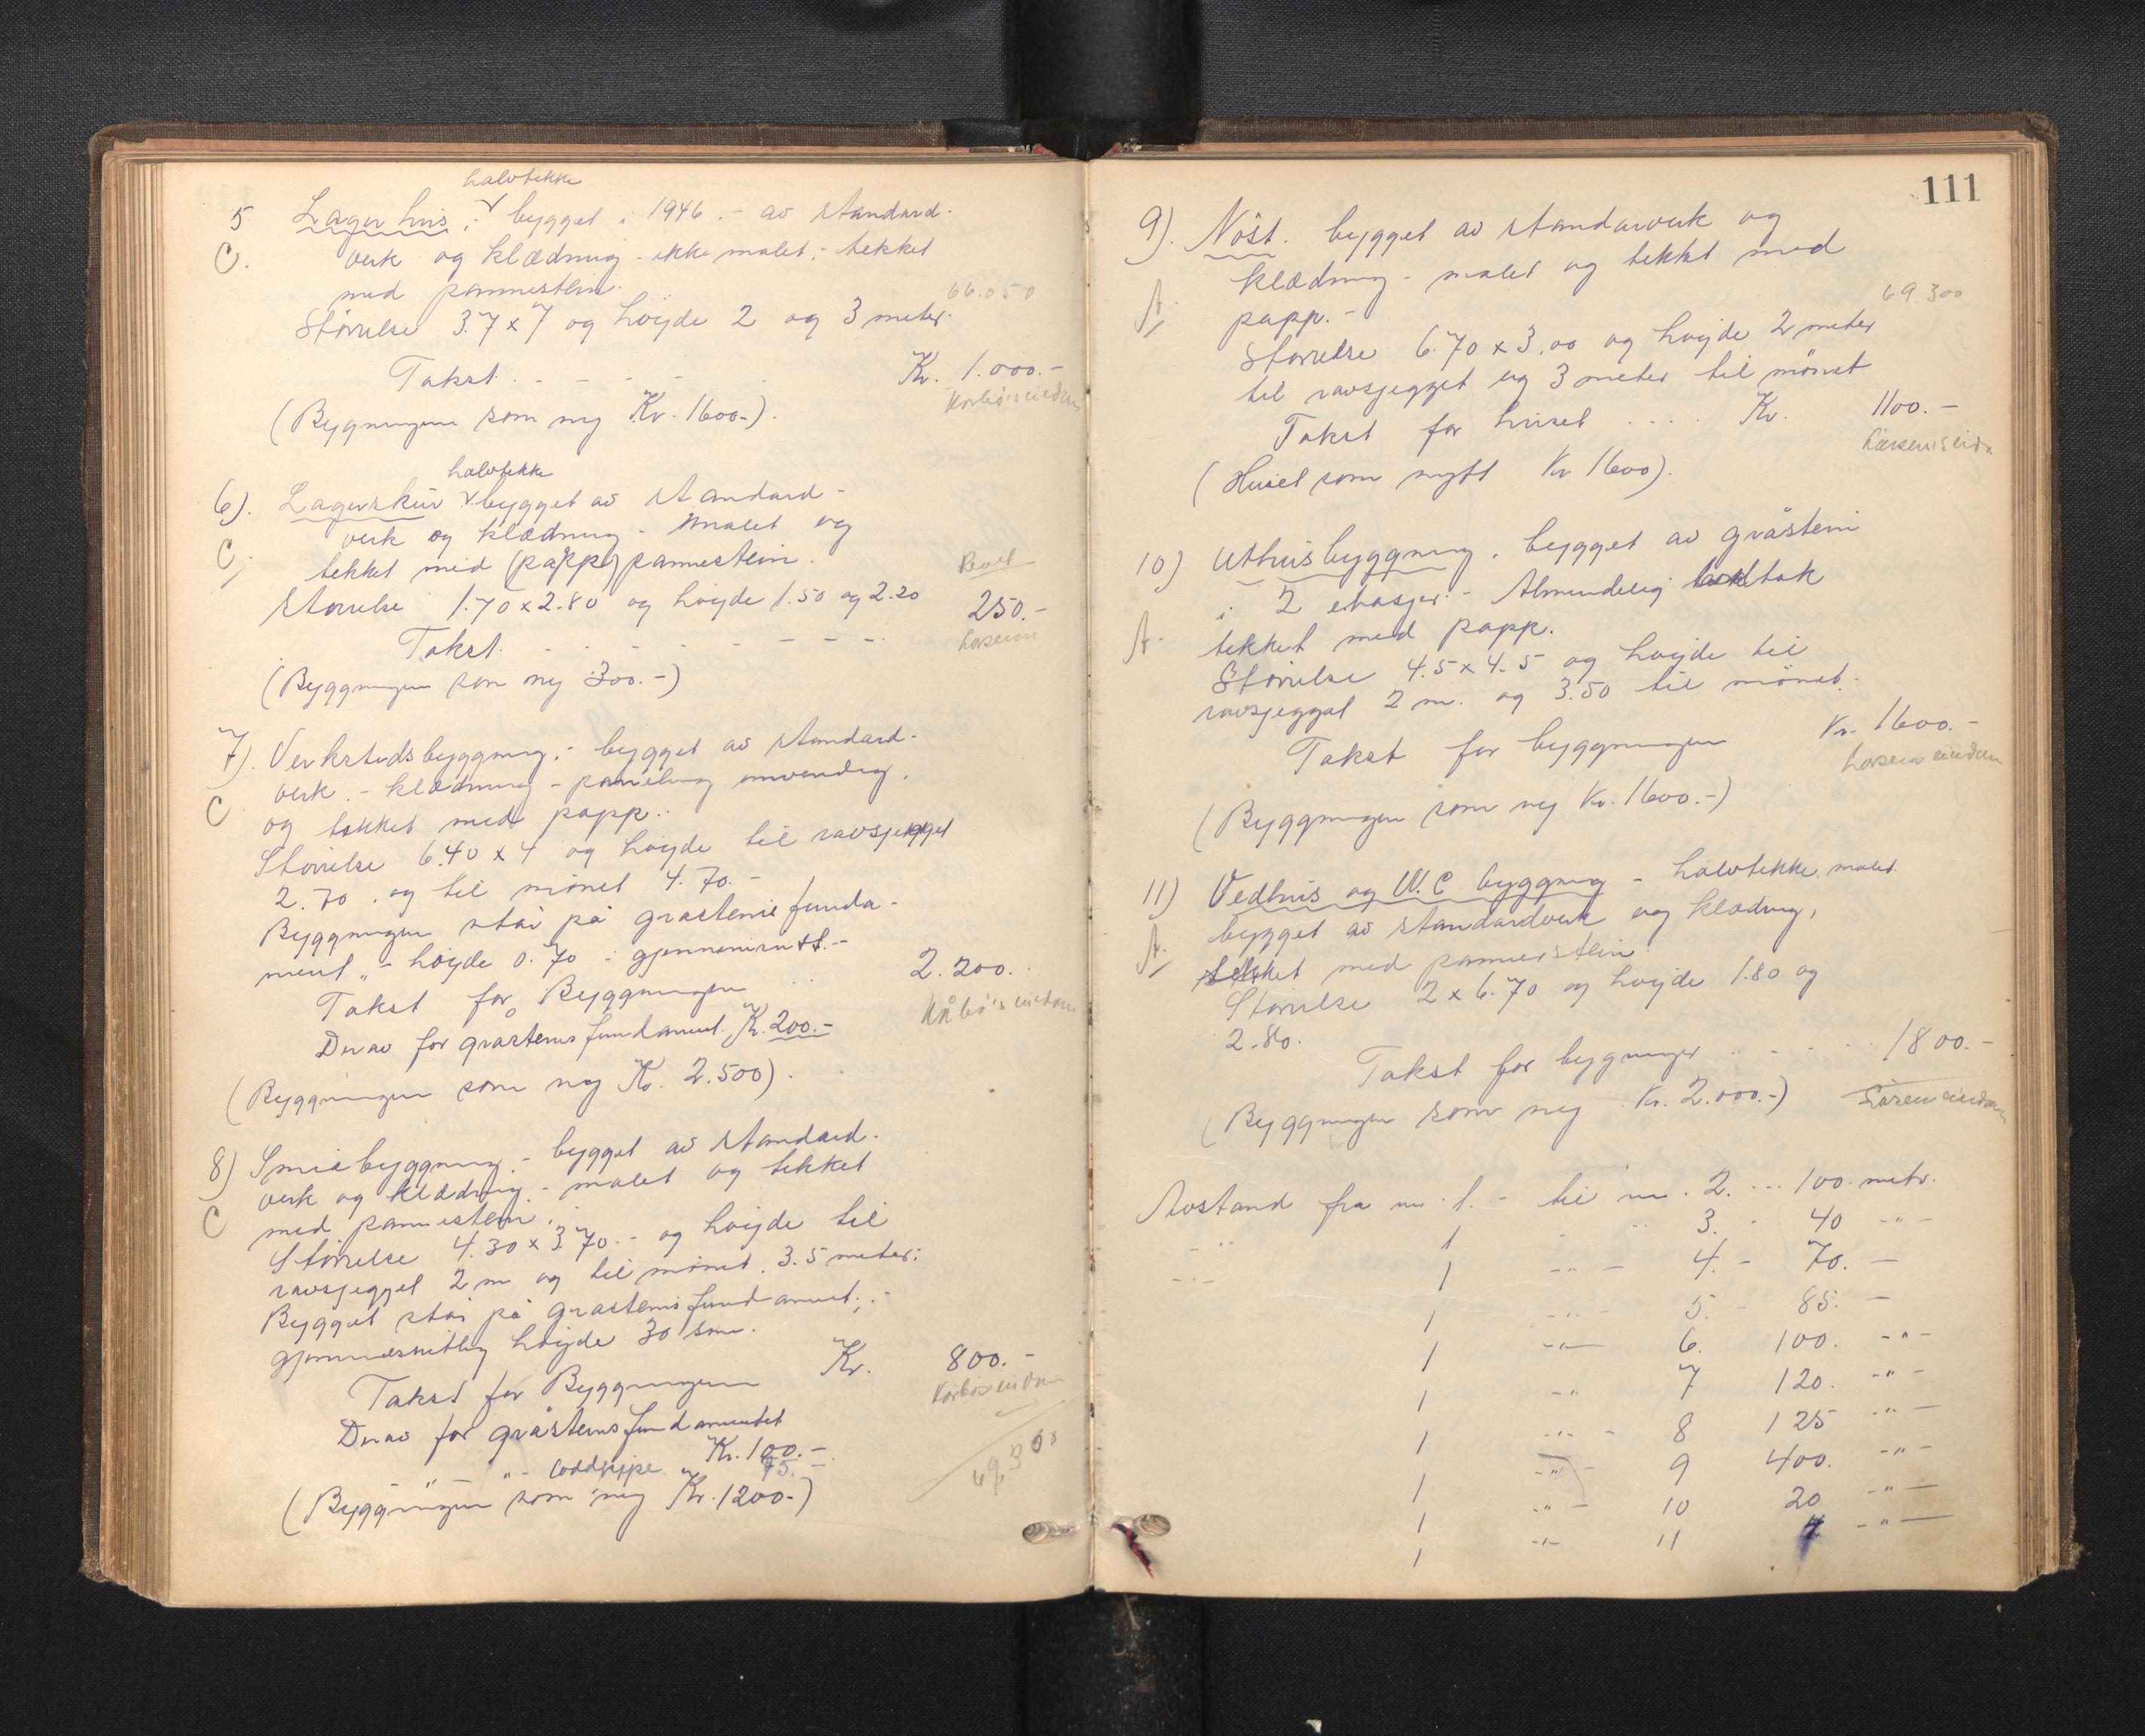 halvtekke
5 Lagerhus ; bygget i 1946. - av standard-
C. verk og klædning - ikke malet. - tekket
med pannestein.
66.050
Størrelse 3.7 x 7 og høyde 2 og 3 meter.
Takst. - - - - Kr. 1.000.-
(Bygningen som ny Kr. 1600.-).
halvtekke
6). Lagerskur bygget av standard-
verk og klædning - malet og
C tekket med (papp) pannestein.
Størrelse 1.70 x 2.80 og høyde 1.50 og 2.20
Takst. - - - - - 250.-
Larsens
(Byggningen som ny 300.-)
7). Verkstedsbyggning. - bygget av standard-
verk. - klædning - paneling innvendig.
C og tekket med papp.
Størrelse 6.40 x 4 og høyde til ravsjegget
2.70 . og til mønet 4.70. -
Byggningen står på grastens funda-
ment „ - høyde 0.70 i gjennemsnitt. -
Takst for Byggningen 2.200.
Derav for grastens fundament Kr. 200.-
(Byggningen som ny Kr. 2.500).
8) Smiebyggning. - bygget av standard-
verk og klædning. - malet og tekket
C med pannestein.
Størrelse 4.30 x 3.70. - og høyde til
ravsjegget 2 m og til mønet. 3.5 meter.
Bygget står på grastens fundament. -
gjennemsnitlig høyde 30 sm.
Takst for Byggningen Kr. 800.-
Derav for gråstensfundamentet
Kr. 100.-
- " - " - loddpipe 75.-
69300
(Byggningen som ny Kr. 1200.-)
111
9). Nöst. bygget av standarverk og
klædning - malet og tekket med
A. papp. -
69.300
Størrelse 6.70 x 3.00 og høyde 2 meter
til ravsjegget og 3 meter til mönet
Takst for huset .... Kr. 1100.-
Larsens eiend
(Huset som nytt Kr 1600).
10) Uthusbyggning. bygget av gråstein
i 2 etasjer. - Almindelig tak
A. tekket med papp.
Størrelse 4.5 x 4.5 og høyde til
ravsjegget 2 m. og 3.50 til mønet.
Takst for byggningen Kr. 1600.-
Larsens eiendom
(Byggningen som ny Kr. 1600.-)
11) Vedhus og W.C byggnig - halvtekke. malet.
bygget av standardverk og klædnig,
A. tekket med pannerstein.
Størrelse 2 x 6.70 og høyde 1.80 og
2.80.
Takst for bygninger . - - - 1800.-
Larsens eiendom
(Byggningen som ny Kr. 2.000.-)
Avstand fra nr. 1. - til nr. 2. ... 100. metr.
- " - 1 - " 3. - 40 - " -
- " - 1 - " - 4. - 70. -
1 - " - 5. - 85. -
1 - " - 6. 100. - " -
1 - " 7 120. - " -
1 - " - 8 125 - " -
1 - " - 9 400. - " -
1 - " - 10 20 - " -
1 - " - 11 4 - " -